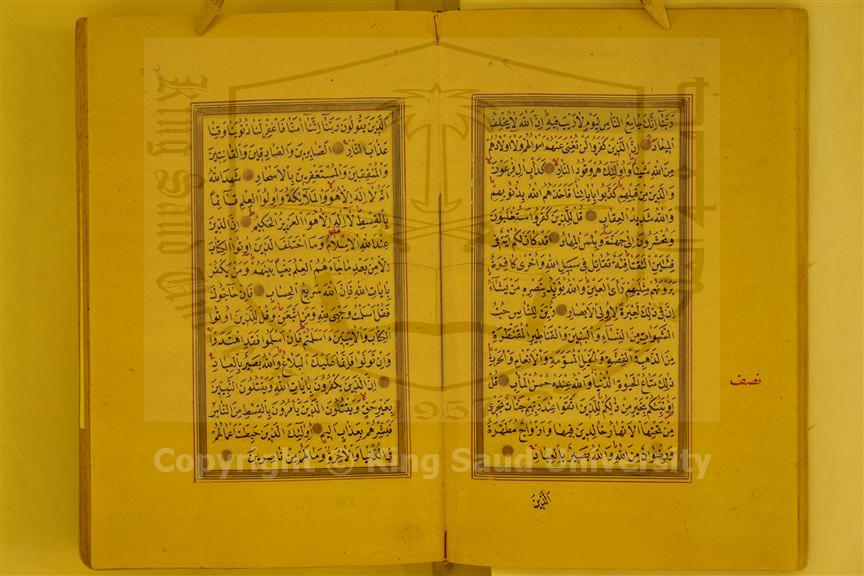 ربنا انك جامع الناس ليوم لا ريب فيه ان الله لا يخلف
الميعاد ان الذين كفروا لن تغنى عنهم اموالهم ولا اولادهم
من الله شيئا واولئك هم وقود النار كداب ال فرعون
والذين من قبلهم كذبوا باياتنا فاخذهم الله بذنوبهم
والله شديد العقاب قل للذين كفروا ستغلبون
وتحشرون الى جهنم وبئس المهاد قد كان لكم اية فى
فئتين التقتا فئة تقاتل فى سبيل الله واخرى كافرة
يرونهم مثليهم راى العين والله يؤيد بنصره من يشاء
ان فى ذلك لعبرة لاولى الابصار زين للناس حب
الشهوات من النساء والبنين والقناطير المقنطرة
من الذهب والفضة والخيل المسومة والانعام والحرث
ذلك متاع الحيوة الدنيا والله عنده حسن الماب قل
اؤنبئكم بخير من ذلكم للذين اتقوا عند ربهم جنات تجرى
من تحتها الانهار خالدين فيها وازواج مطهرة
ورضوان من الله والله بصير بالعباد
نصف
الذين
الذين يقولون ربنا اننا امنا فاغفر لنا ذنوبنا وقنا
عذاب النار الصابرين والصادقين والقانتين
والمنفقين والمستغفرين بالاسحار شهد الله
انه لا اله الا هو والملائكة واولوا العلم قائما
بالقسط لا اله الا هو العزيز الحكيم ان الدين
عند الله الاسلام وما اختلف الذين اوتوا الكتاب
الا من بعد ما جاءهم العلم بغيا بينهم ومن يكفر
بايات الله فان الله سريع الحساب فان حاجوك
فقل اسلمت وجهى لله ومن اتبعن وقل للذين اوتوا
الكتاب والاميين ءاسلمتم فان اسلموا فقد اهتدوا
وان تولوا فانما عليك البلاغ والله بصير بالعباد
ان الذين يكفرون بايات الله ويقتلون النبيين
بغير حق ويقتلون الذين يامرون بالقسط من الناس
فبشرهم بعذاب اليم اولئك الذين حبطت اعمالهم
فى الدنيا والاخرة وما لهم من ناصرين
King Saud
1957
Copyright © King Saud University